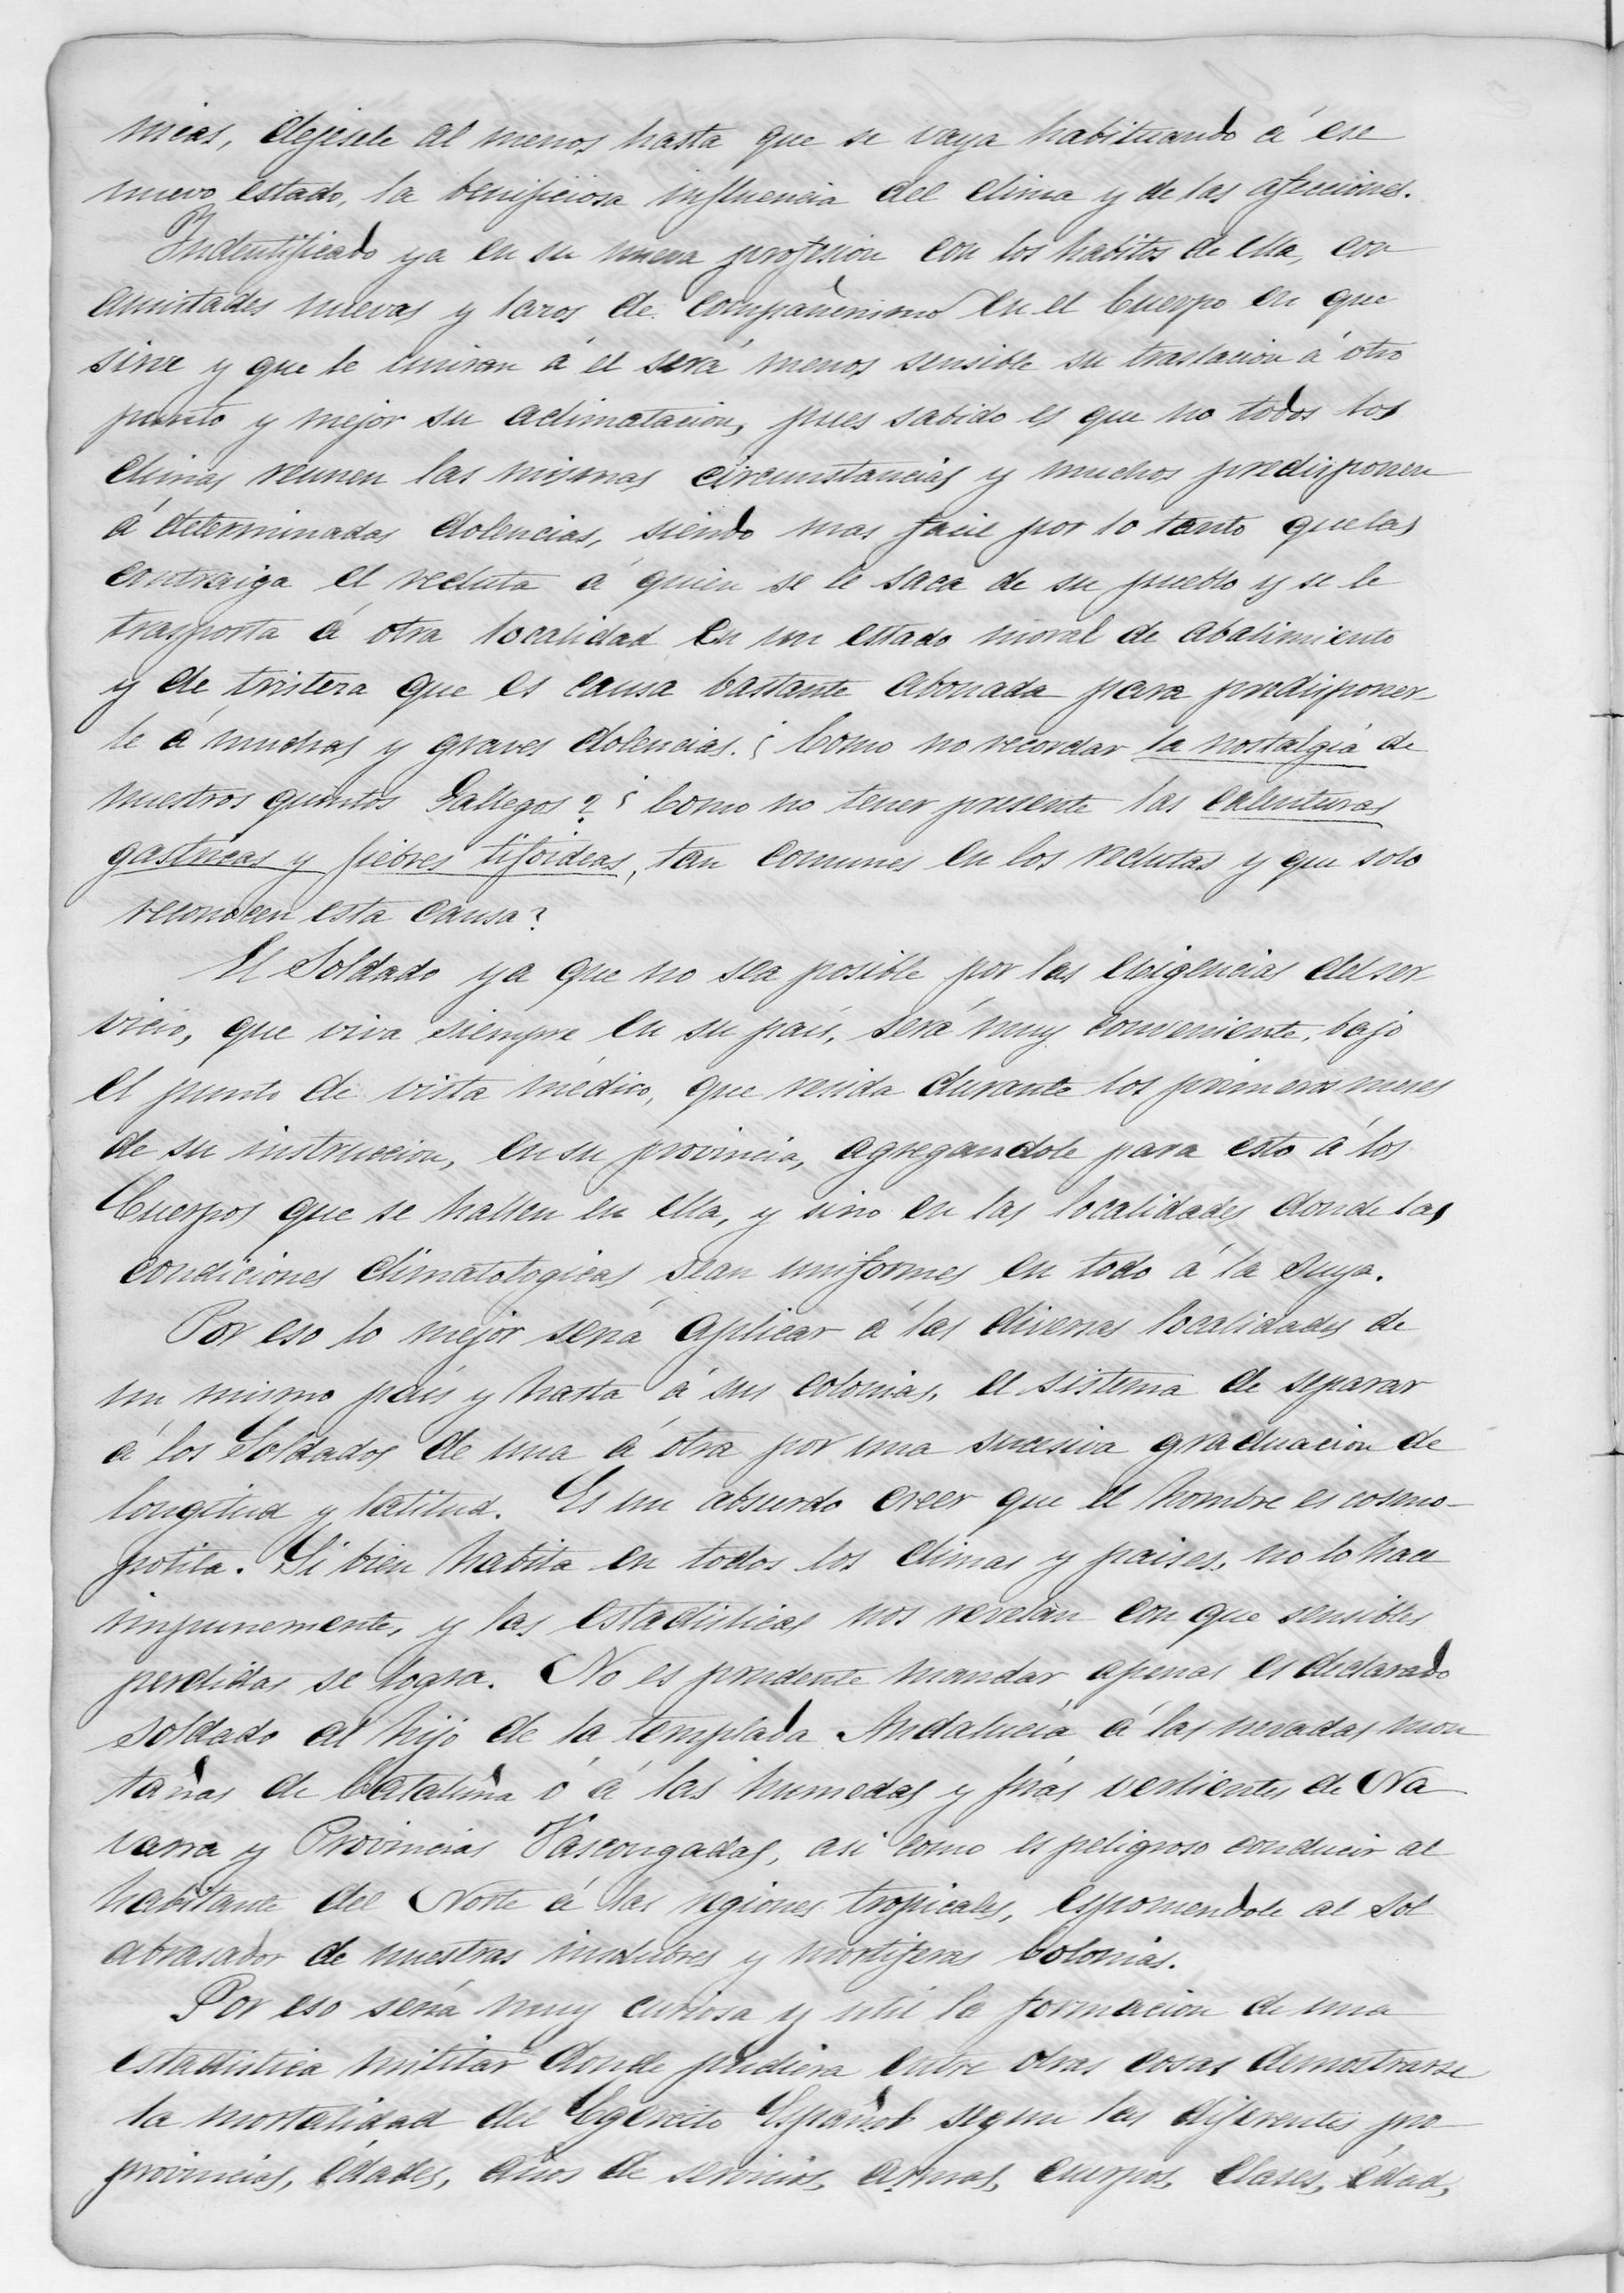 micas, dejesele al menos hasta que se vaya habituando á ese
nuevo estado, la benificiosa influencia del clima y de las afecciones.
Indentificado ya en su nueva profesion con los habitos de ella, con
amistades nuevas y lazos de compañerismo en el Cuerpo en que
sirve y que le uniran á el será menos sensible su traslacion á otro
punto y mejor su aclimatacion, pues sabido es que no todos los
climas reunen las mismas circunstancias y muchos predisponen
á determinadas dolencias, siendo mas facil por lo tanto que las
contraiga el recluta á quien se le saca de su pueblo y se le
trasporta á otra localidad en un estado moral de abatimiento
y de tristeza que es causa bastante abonada para predisponer-
le á muchas y graves dolencias. ¿Como no recordar la nostalgia de
nuestros quintos Gallegos? ¿Como no tener presente las calenturas
gastricas y fiebres tifoideas, tan comunes en los reclutas y que solo
reconocen esta causa?
El Soldado ya que no sea posible por las exigencias del ser-
vicio, que viva siempre en su pais, será muy conveniente, bajo
el punto de vista médico, que resida durante los primeros meses
de su instruccion, en su provincia, agregandole para esto á los
Cuerpos que se hallen en ella, y sino en las localidades donde las
condiciones climatologicas sean uniformes en todo á la suya.
Por eso lo mejor seriá aplicar á las diversas localidades de
un mismo pais y hasta á sus colonias, el sistema de separar
á los Soldados de una á otra por una sucesiva graduacion de
longitud y latitud. Es un absurdo creer que el hombre es cosmo-
polita. Si bien habita en todos los climas y paises, no lo hace
impunemente, y las estadisticas nos revelan con que sensibles
perdidas se logra. No es prudente mandar apenas es declarado
soldado al hijo de la templada Andalucia á las nevadas mon
tañas de Cataluña ó á las humedas y frias vertientes de Na
varra y Provincias Vascongadas, asi como es peligroso conducir al
habitante del Norte á las regiones tropicales, esponiendole al sol
abrasador de nuestras insalubres y mortiferas Colonias.
Por eso seriá muy curiosa y util la formacion de una
estadistica militar donde pudiera entre otras cosas demostrarse
la mortalidad del Egercito Español segun las diferentes pro-
provincias, édades, años de servicios, armas, cuerpos, clases, édad,